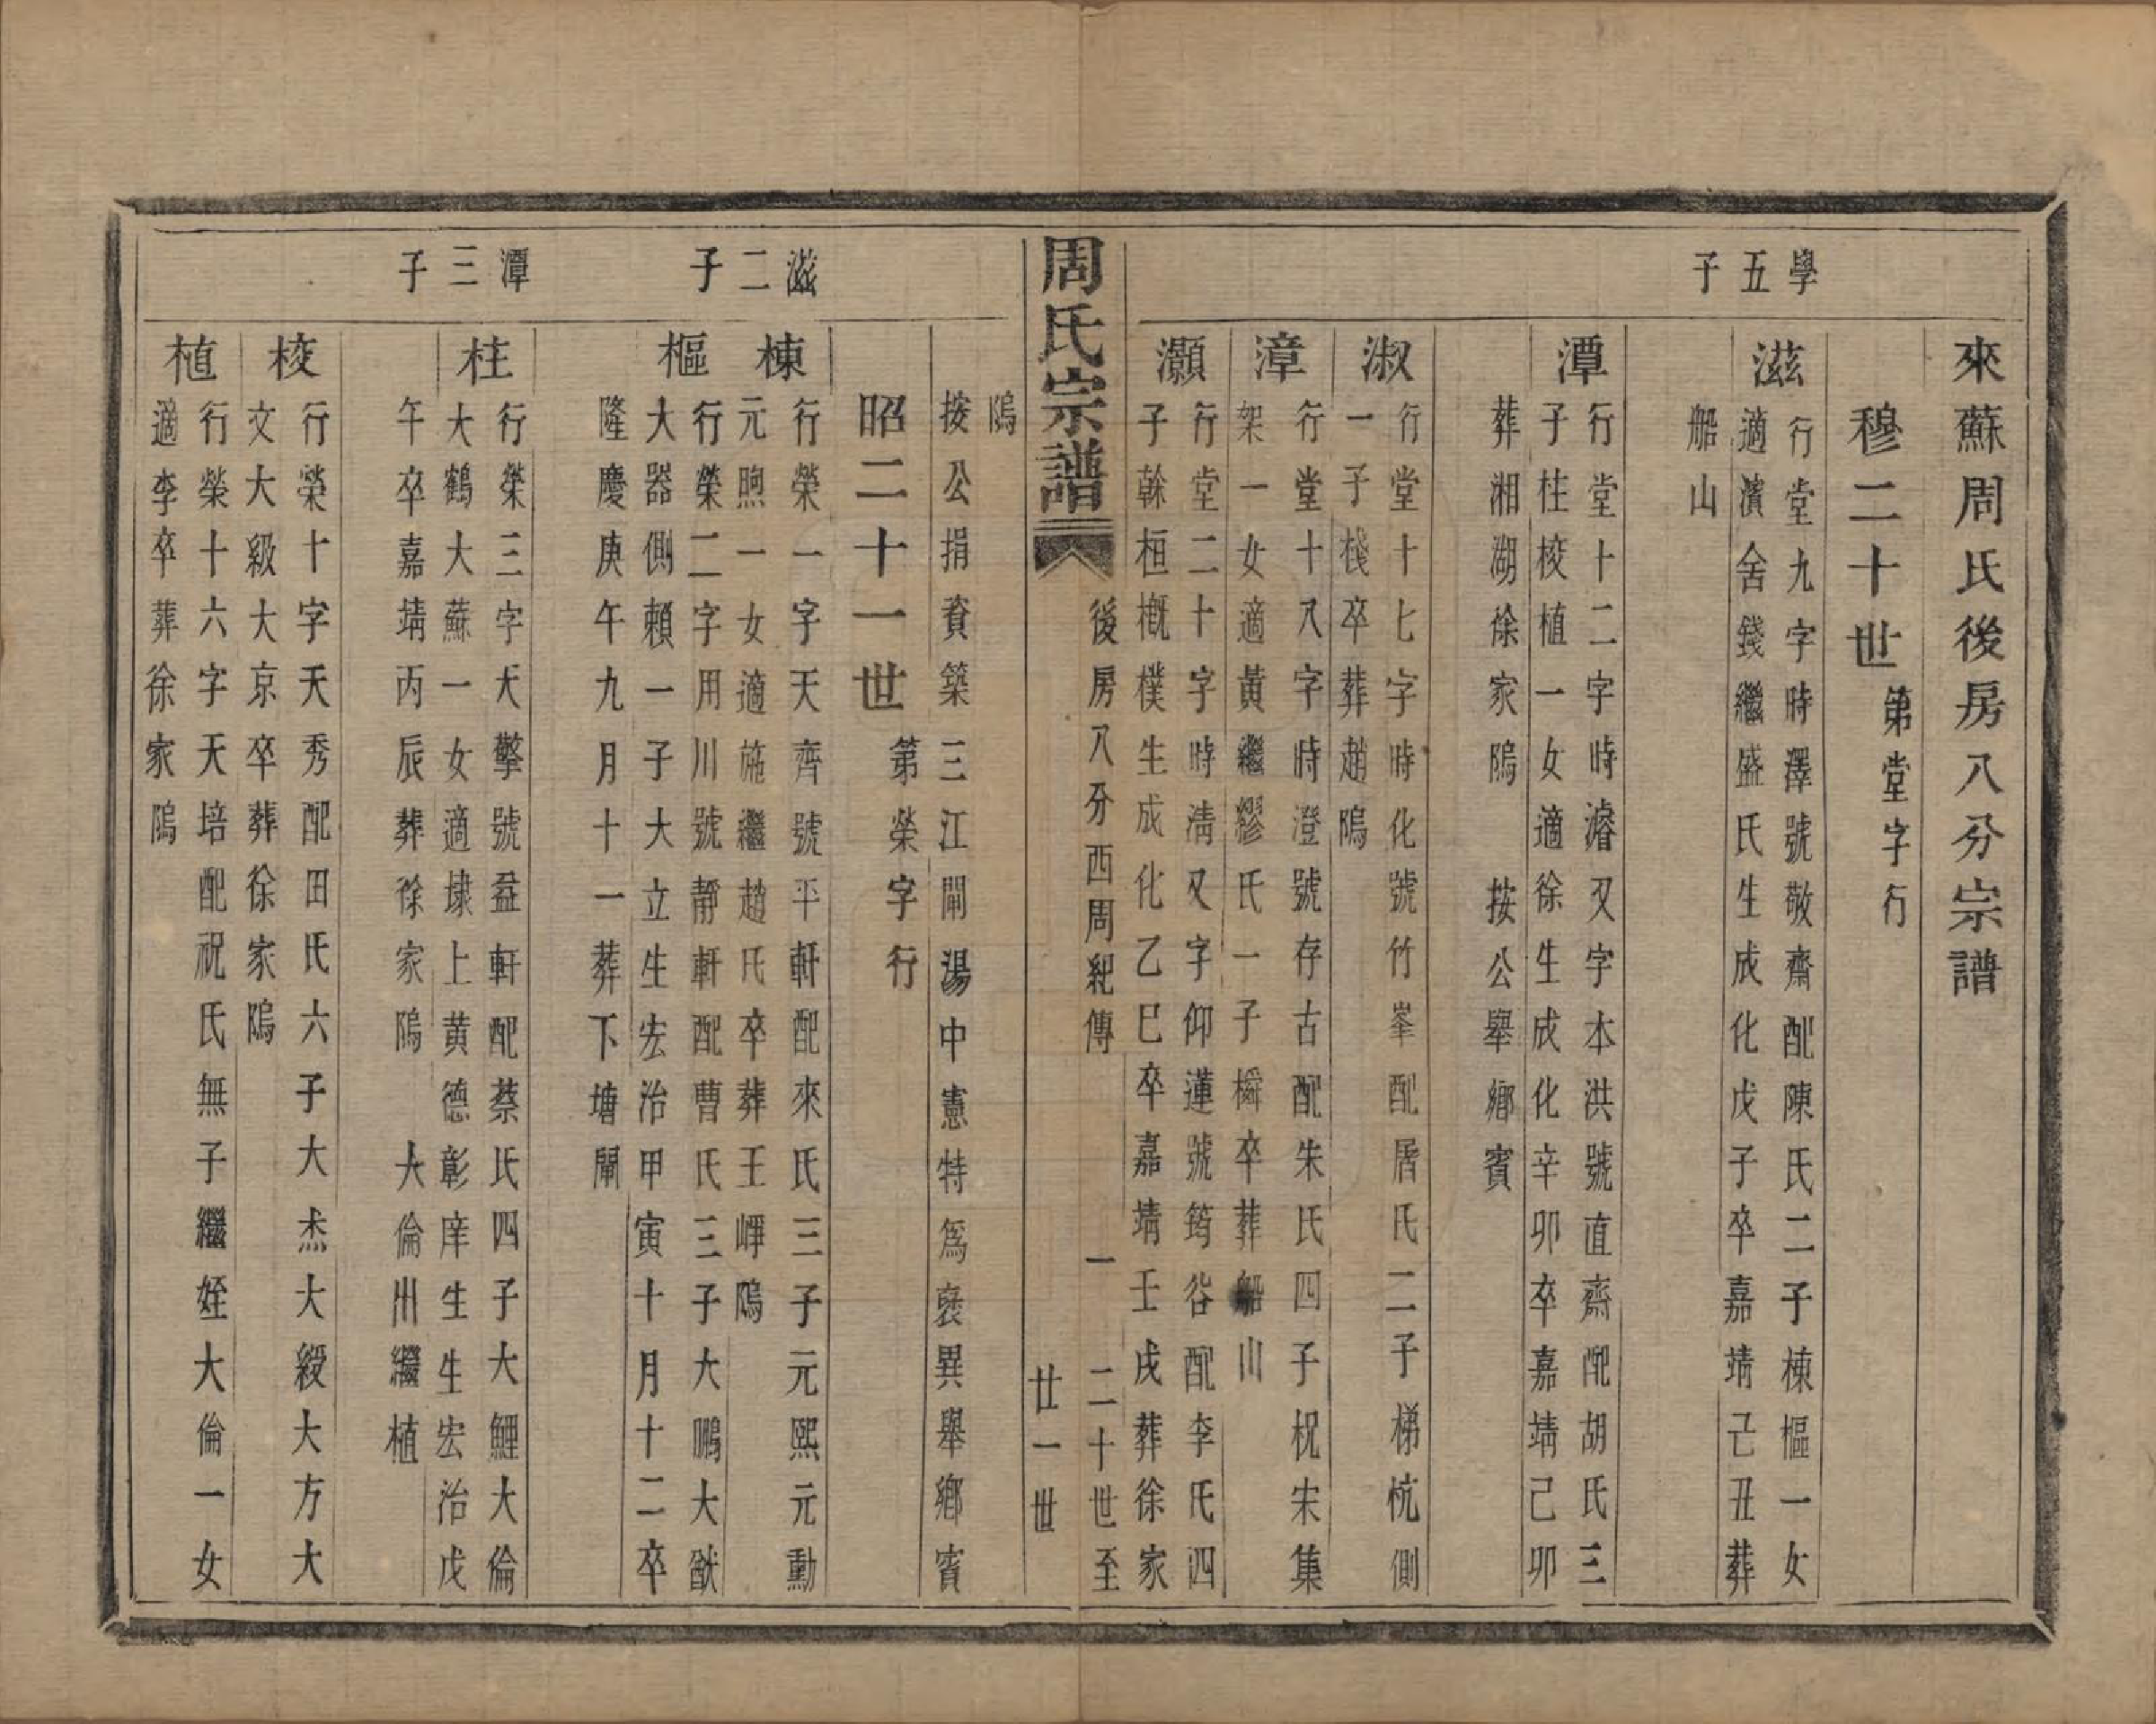 來蘇周氏後房八分宗譜
穆二十世第堂字行
學五子
滋
行堂九字時澤號敬齋配陳氏二子棟樞一女
適濱舍錢繼盛氏生成化戊子卒嘉靖己丑葬
船山
潭
行堂十二字時濬又字本洪號直齋配胡氏三
子柱梭植一女適徐生成化辛卯卒嘉靖己卯
葬湘湖徐家隖　按公舉鄉賓
淑
行堂十七字時化號竹峯配居氏二子梯杭側
一子棧卒葬趙隖
漳
行堂十八字時澄號存古配朱氏四子柷宋集
架一女適黃繼繆氏一子橓卒葬船山
灝
行堂二十字時淸又字仰蓮號筠谷配李氏四
子榦桓概樸生成化乙巳卒嘉靖壬戌葬徐家
周氏宗譜
後房八分西周紀傳
一
二十世至
廿一世
隖
按公捐資築三江閘湯中憲特爲褒異舉鄉賓
昭二十一世第榮字行
滋二子
棟
行榮一字天齊號平軒配來氏三子元熙元勳
元煦一女適施繼趙氏卒葬王㟁隖
樞
行榮二字用川號靜軒配曹氏三子大鵬大猷
大器側賴一子大立生宏治甲寅十月十二卒
隆慶庚午九月十一葬下塘閘
潭三子
柱
行榮三字天擎號益軒配蔡氏四子大鯉大倫
大鶴大蘇一女適埭上黃德彰庠生生宏治戊
午卒嘉靖丙辰葬徐家隖　大倫出繼植
梭
行榮十字天秀配田氏六子大杰大綬大方大
文大級大京卒葬徐家隖
植
行榮十六字天培配祝氏無子繼姪大倫一女
適李卒葬徐家隖